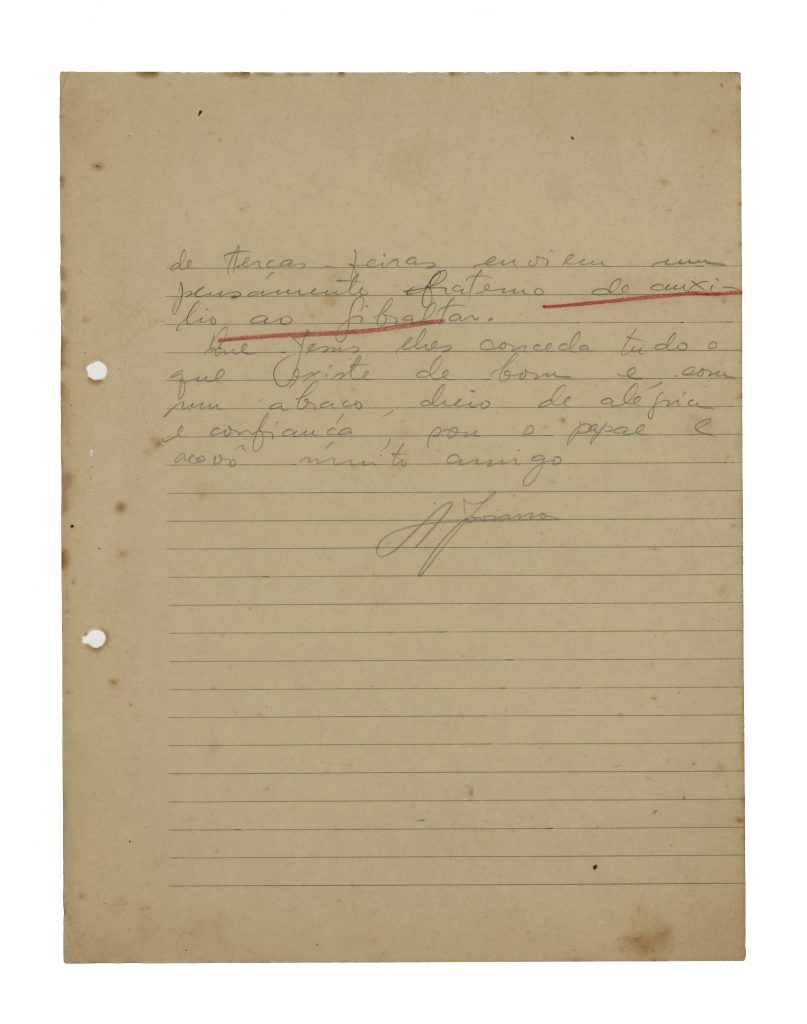 de terças feiras enviem um
pensamento fraterno de auxi-
lio ao Gibraltar.
Que Jesus lhes conceda tudo o
que existe de bom e com
um abraco, cheio de alégria
e confianca, sou o papae e
vovô muito amigo